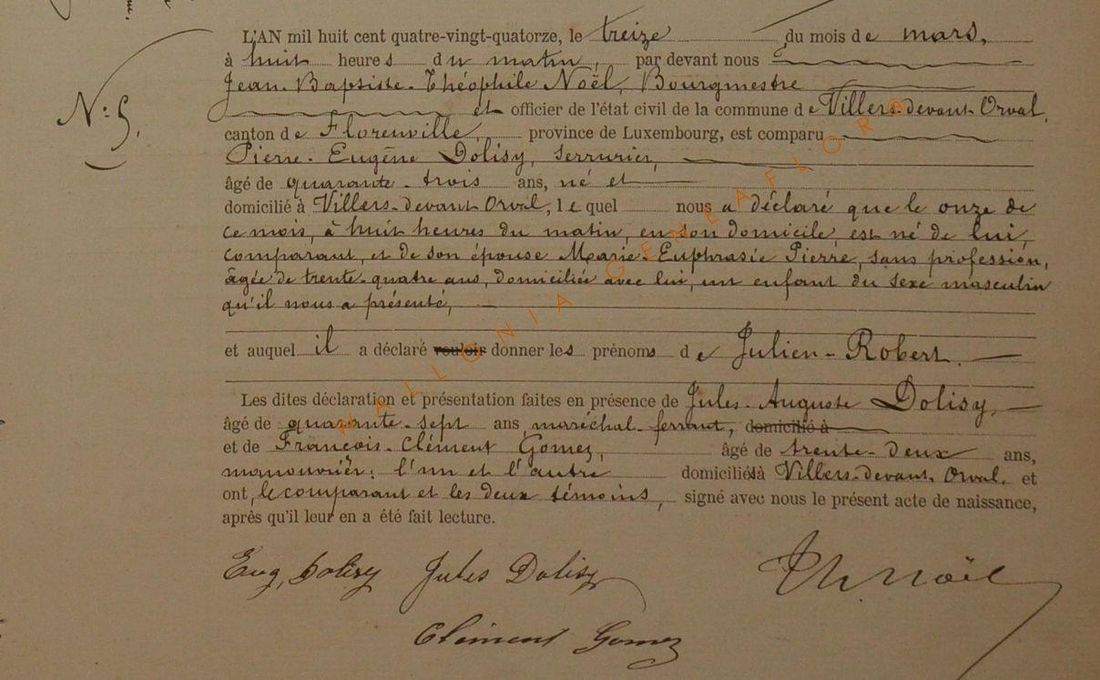 L'AN mil huit cent quatre-vingt-quatorze, le treize du mois de mars,
à huit heures du matin, par devant nous
Jean-Baptiste-Théophile Noël, Bourgmestre
et officier de l'état civil de la commune de Villers-devant-Orval,
N: 5,
canton de Florenville, province de Luxembourg, est comparu
Pierre-Eugène Dolisy, serrurier,
âgé de quarante-trois ans, né et
domicilié à Villers-devant-Orval, lequel nous a déclaré que le onze de
ce mois, à huit heures du matin, en son domicile, est né de lui,
comparant, et de son épouse Marie-Euphrasie Pierre, sans profession,
âgée de trente-quatre ans, domiciliée avec lui, un enfant du sexe masculin
qu'il nous a présenté,
et auquel il a déclaré vouloir donner les prénoms de Julien-Robert
Les dites déclaration et présentation faites en présence de Jules-Auguste Dolisy,
âgé de quarante-sept ans, maréchal-ferrant, domicilié à
et de François-Clément Gomez, âgé de trente-deux ans,
manouvrier: l'un et l'autre domiciliés à Villers-devant-Orval, et
ont, le comparant et les deux témoins, signé avec nous le présent acte de naissance,
après qu'il leur en a été fait lecture.
Eug, Dolisy Jules Dolisy Th. Noël
Clément Gomez
WALLONIA GENEAFLORE